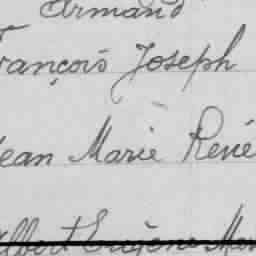 Armand
François Joseph
Jean Marie René
Albert Eugène